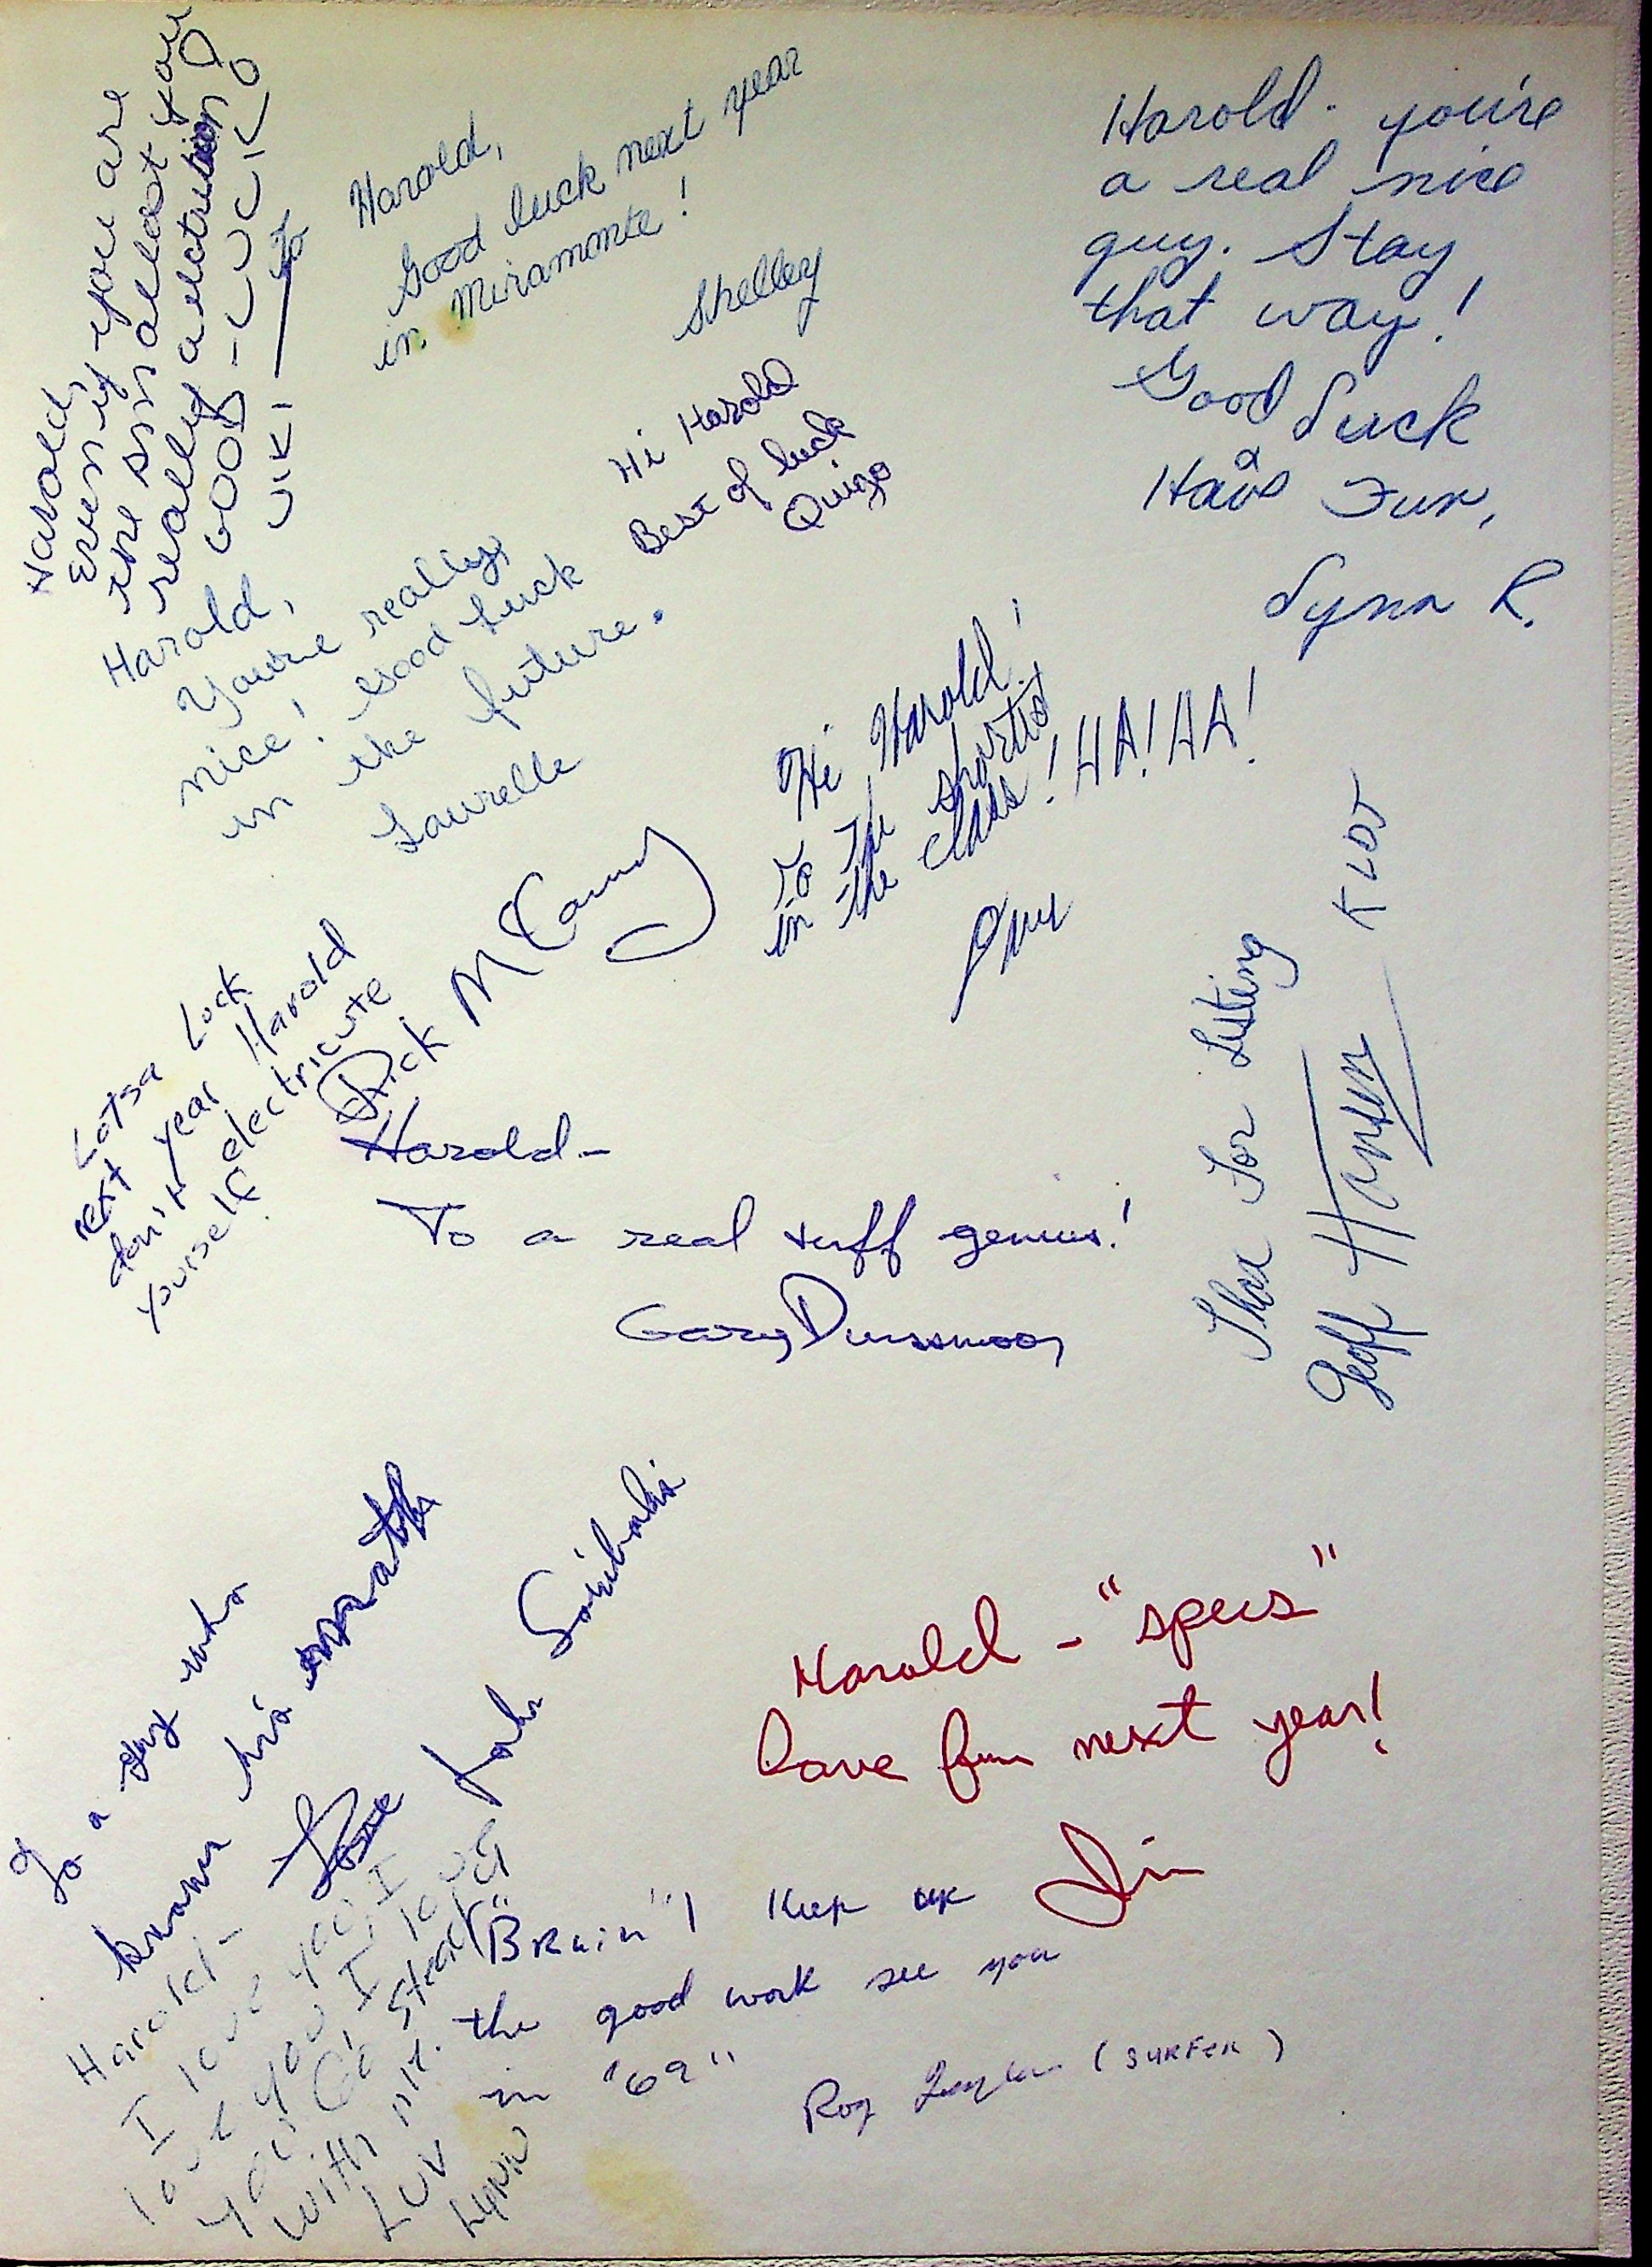 Harold,
Even if you are
the smallest you
really a electrition
GOOD-LUCK
To
Harold,
Good luck next year
in Miramonte!
Shelley
Harold - you're
a real nice
guy. Stay
that way!
Good Luck
&
Have Fun,
Lynn R.
Hi Harold
Best of luck
Quigo
Harold,
You're really
nice! Good Luck
in the future.
Laurelle
Hi Harold!
To the shortist
in the class! HA! HA!
Dick McCamy
Lotsa Luck
next year Harold
don't electricute
yourself
Thax For Listing
Geoff Hansen KLOT
Harold-
To a real tuff genius!
Gary Dunsmoor
To a guy who
knows his math
John
Harold - "specs"
have fun next year!
Jim
Harold-
I love you! I
love you I love
you! Go Steady
with me.
Luv
Lynn
"Brain"! Keep up
the good work see you
in "69"
Roy (SURFER)